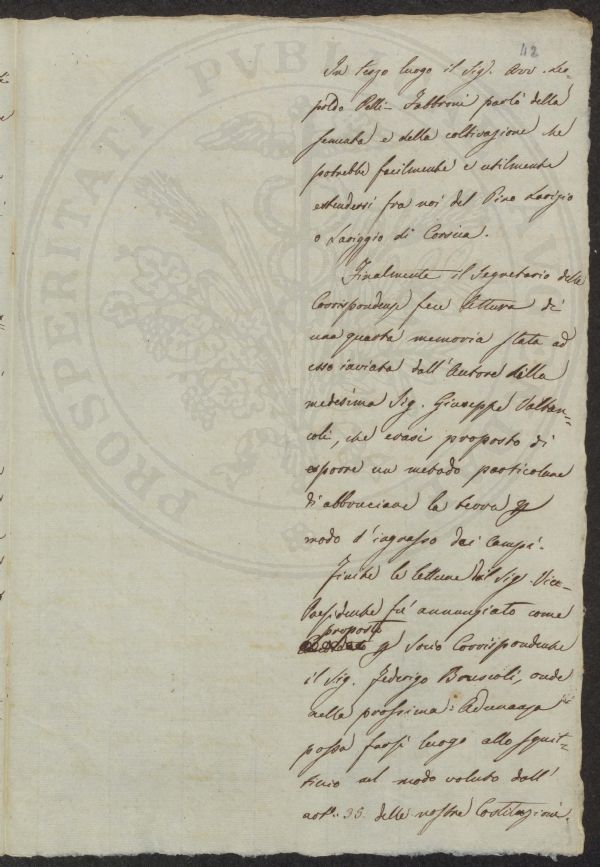 42
In terzo luogo il Sig. Avv. Leo-
poldo Pelli-Fabbroni parlò della
sementa e della coltivazione che
potrebbe facilmente e utilmente
estendersi fra noi del Pino Larizio
o Lariggio di Corsica.
Finalmente il Segretario delle
Corrispondenze fece lettura di
una quarta memoria stata ad
esso inviata dall'Autore della
medesima Sig. Giuseppe Valtan-
coli, che erasi proposto di
esporre un metodo particolare
di abbruciare la terra p
modo d'ingrasso dei Campi.
Finite le letture dal Sig. Vice-
Presidente fu annunziato come
proposto
p socio Corrispondente
il Sig. Federigo Bruscoli, onde
nella prossima Adunanza
possa farsi luogo allo squit-
tinio nel modo voluto dall'
art. 36. delle nostre Costituzioni.
PROSPERITATI PUBLI